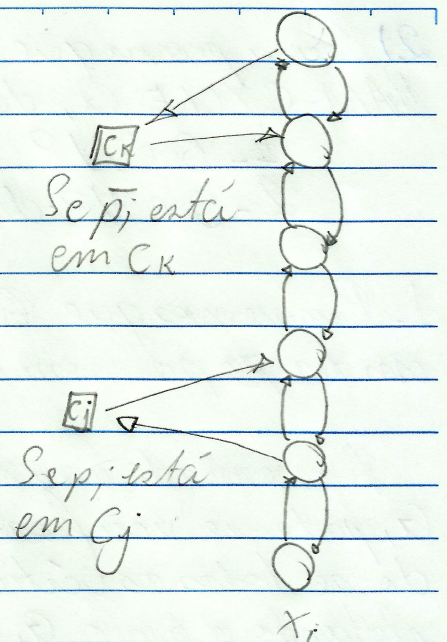 CK
Se p̄i está
em CK
Cj
Se pi está
em Cj
Xi